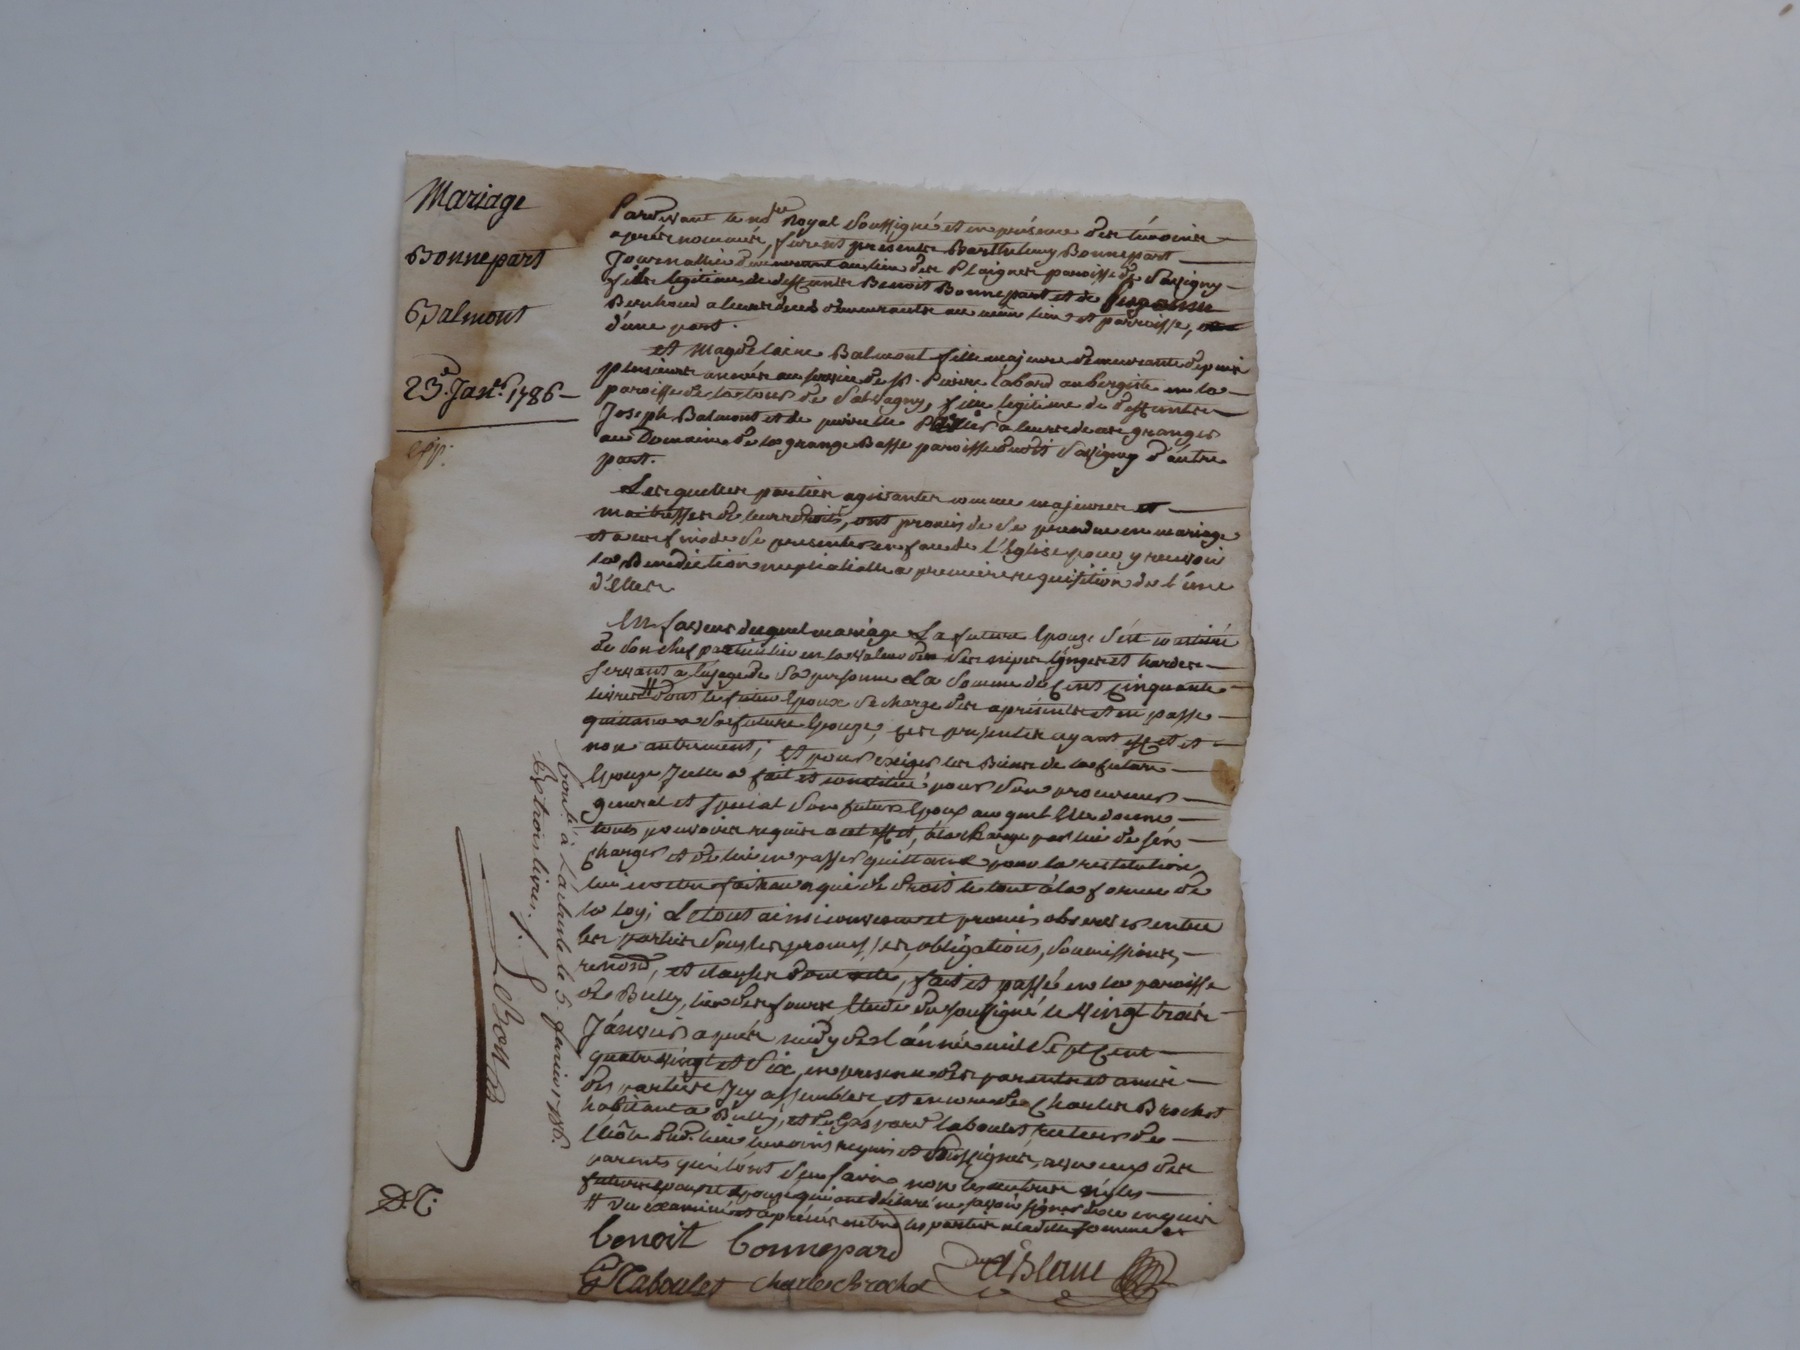 Mariage
Bonnepart
Balmont
23.e Janv.r 1786
exp.
Pardevant le no.re Royal soussigné et en présence des témoins
après nommés, furent présents Barthelemy Bonnepart
Journallier demeurant au lieu des Plaignes paroisse de Savigny
fils légitime de deffunts Benoit Bonnepart et de
a leurs decès demeurants au même lieu et parroisse,
d'une part.
et Magdelaine Balmont fille majeure demeurante depuis
plusieurs années au service de sr. Pierre Labord aubergiste en la
paroisse de la tour de Salvagny, fille légitime de deffunts
Joseph Balmont et de pierrette a leurs decès grangers
au Domaine de la grange Basse paroisse dudit Savigny d'autre
part.
Lesquelles parties agissantes comme majeures et
maitresses de leurs droits, ont promis de se prendre en mariage
et a ces fins de se presenter en face de l'Eglise pour y recevoir
la Benediction nuptialle a premiere requisition de l'une
d'elles
En faveur duquel mariage La future Epouze s'est constitué
de son chef particulier en la valeur de ses nipes linges et hardes
servants a l'usage de sa personne La somme de Cent Cinquante
livres # dont le futur Epoux se charge des aprésents et en passe
quittance a sa future Epouze, ces presentes ayant effet et
non autrement; et pour exiger les Biens de la future
Epouze Icelle a fait et constitué pour son procureur
general et special son futur Epoux auquel Elle donne
touts pouvoirs requis a cet effet, à la charge par lui de s'en
charger et de lui en passer quittance pour la restitution
lui en être faite ou a qui de droit le tout à la forme de
la loy; Le tout ainsi convenu et promis observer entre
les parties sous les promesses, obligations, soumissions,
renond, et clauses dont acte, fait et passé en la paroisse
de Bully, lieu des fours Etude du soussigné le vingt trois
Janvier après midy de l'année mil sept Cent
quatre vingt et six, en presence des parents et amis
des parties Icy assemblés et encore de Charles Brochet
habitant a Bully, et de Gaspard Laboulet recteur de
l'école dud. lieu temoins requis et soussignés, avec ceux des
parents qui l'ont sçeu faire non les autres ny les
futurs epoux et epouze qui ont déclaré ne savoir signer de ce enquis
# vû examiné et apréciés entre les parties a ladite somme et
benoit bonnepard
G Laboulet Charles Brochet Dublanc
Cont.lé à Larbresle le 5 fevrier 1786.
Reç trois livres.
D.C.